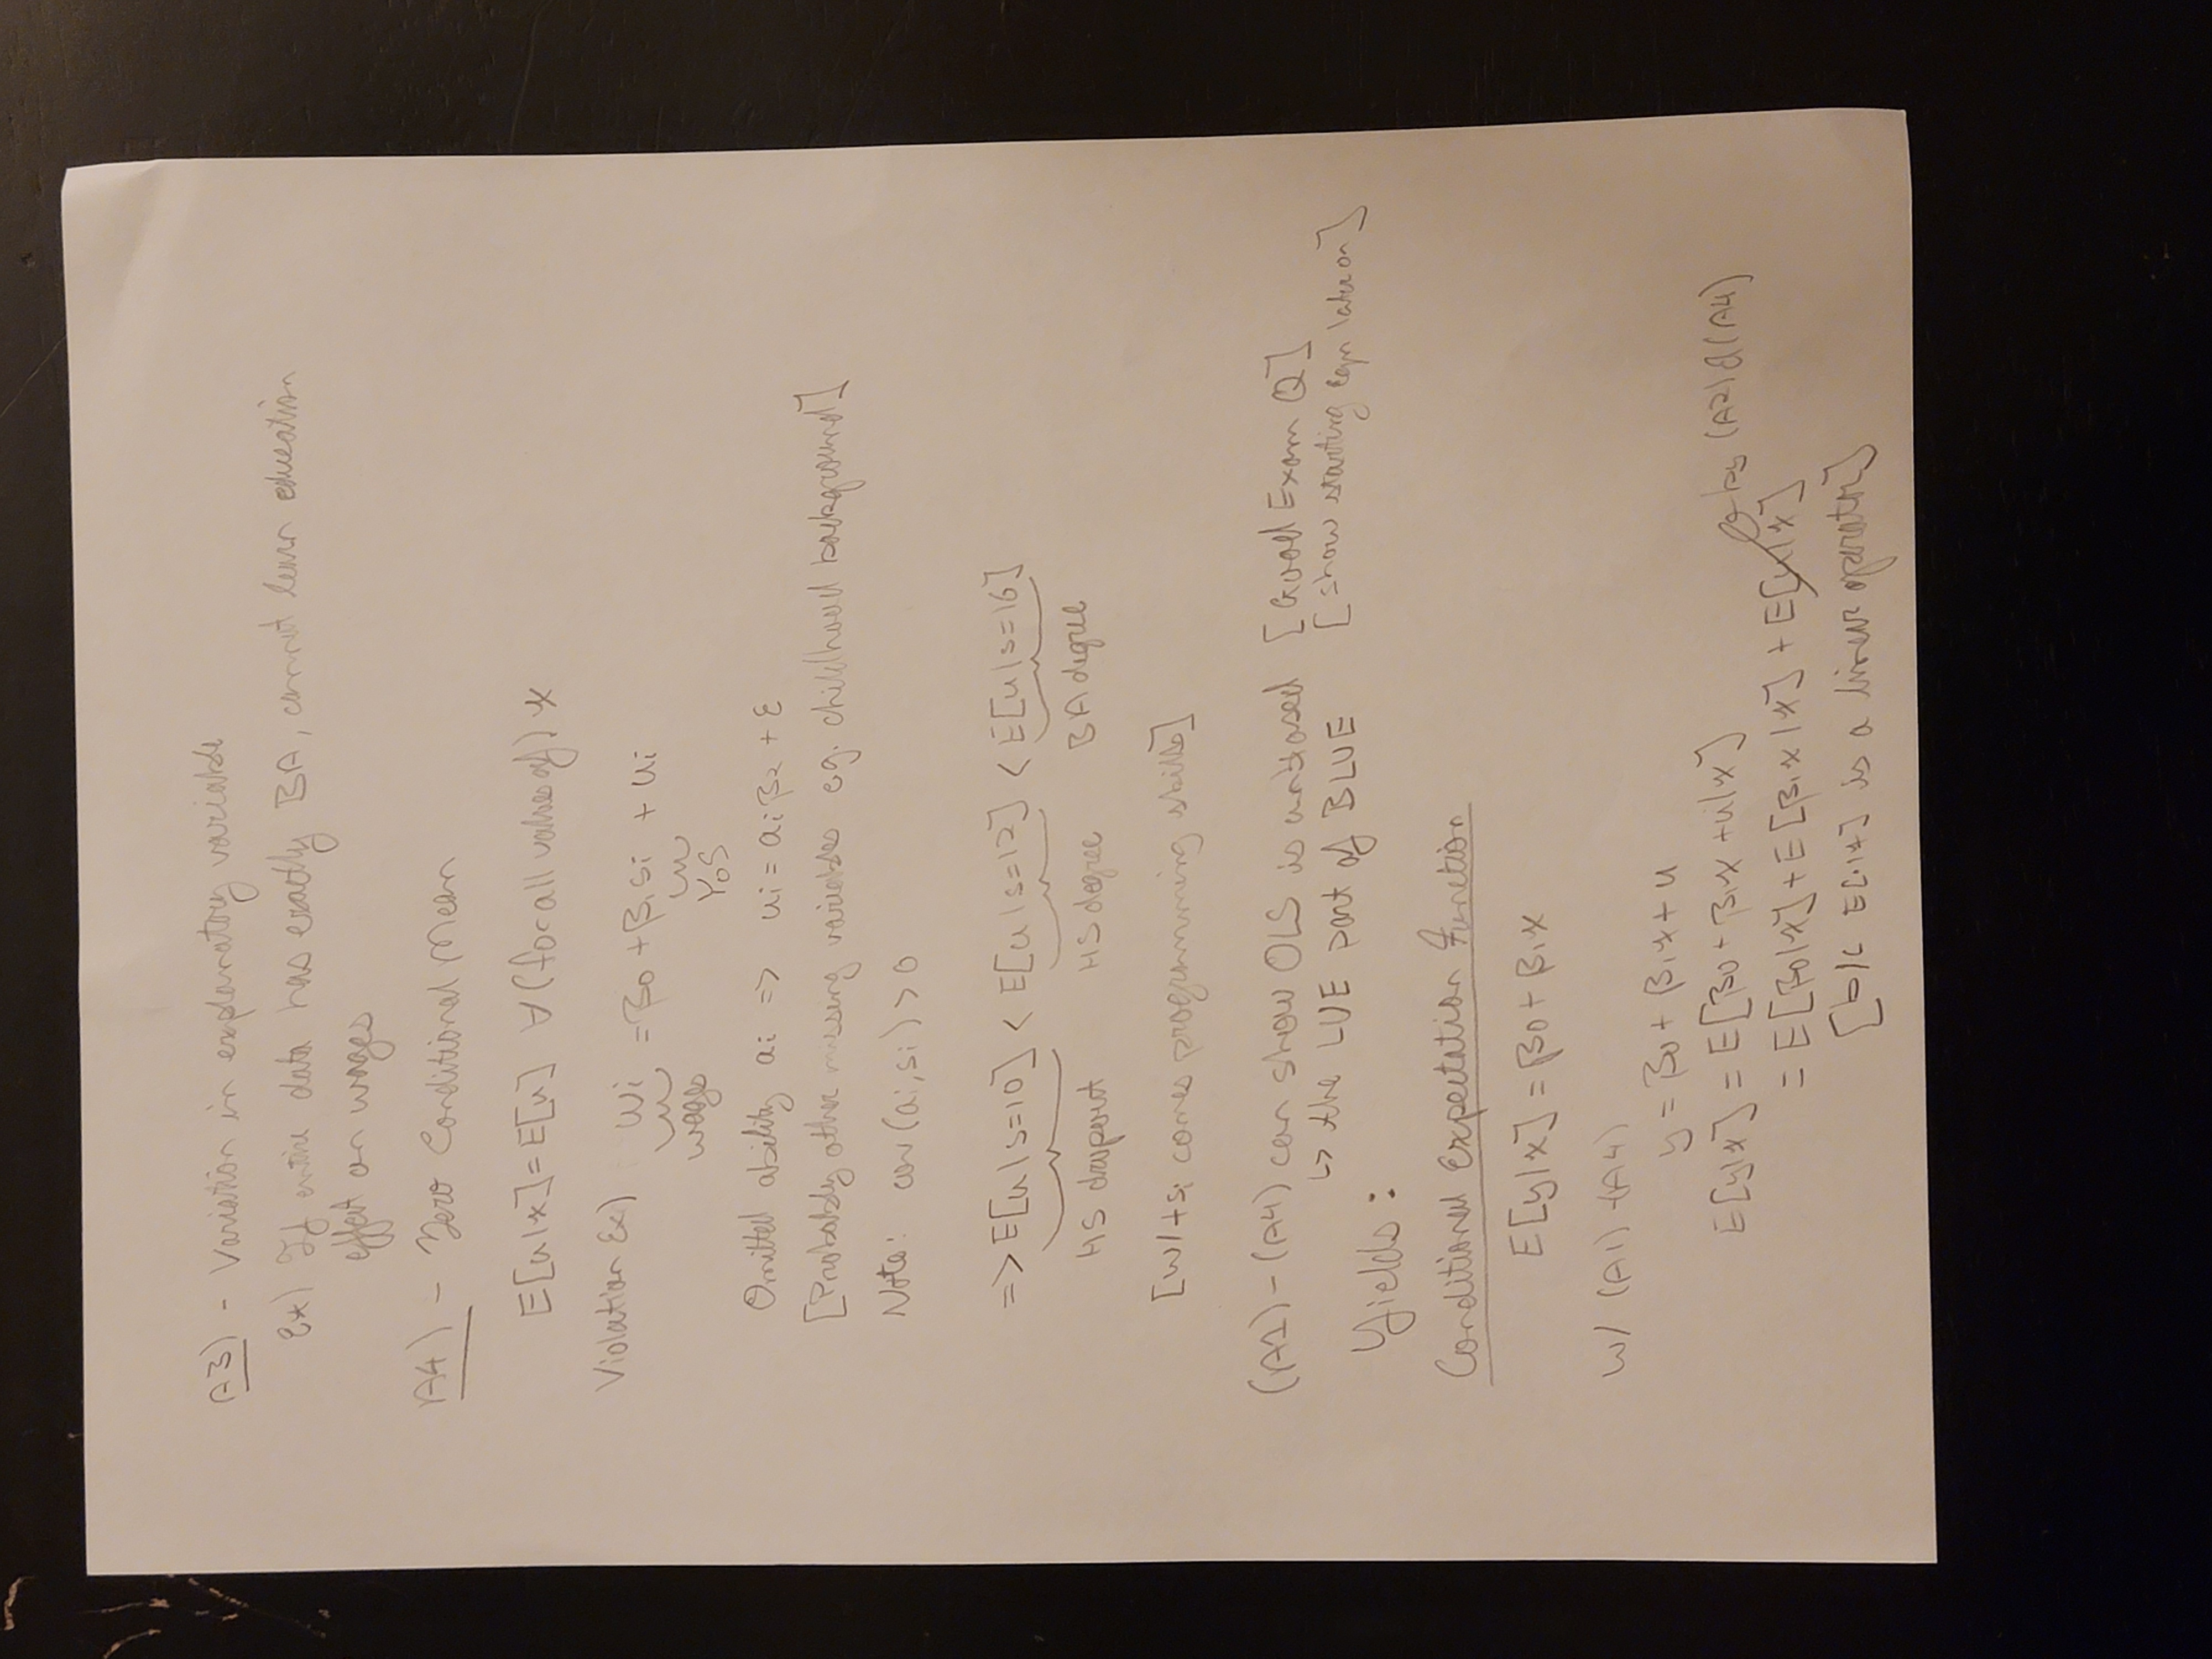 A3) - Variation in explanatory variable
Ex) If entire data has exactly BA, cannot learn education
effect on wages
A4) - Zero Conditional Mean
E[u|x] = E[u] ∀ (for all values of) x
Violation Ex) wi = β0 + β1si + ui
wages YoS
Omitted ability ai => ui = aiβ2 + ε
[Probably other missing variables e.g. childhood background]
Note: cov(ai,si) > 0
=> E[u|s=10] < E[u|s=12] < E[u|s=16]
HS dropout HS degree BA degree
[w/ +si comes programming skills]
(A1) - (A4) can show OLS is unbiased [Good Exam Q]
↳ the LUE part of BLUE [show starting eqn later on]
Yields:
Conditional Expectation Function
E[y|x] = β0 + β1x
w/ (A1)-(A4)
y = β0 + β1x + u
E[y|x] = E[β0 + β1x + u|x]
0 by (A2) & (A4)
= E[β0|x] + E[β1x|x] + E[u|x]
[b/c E[·|x] is a linear operator]